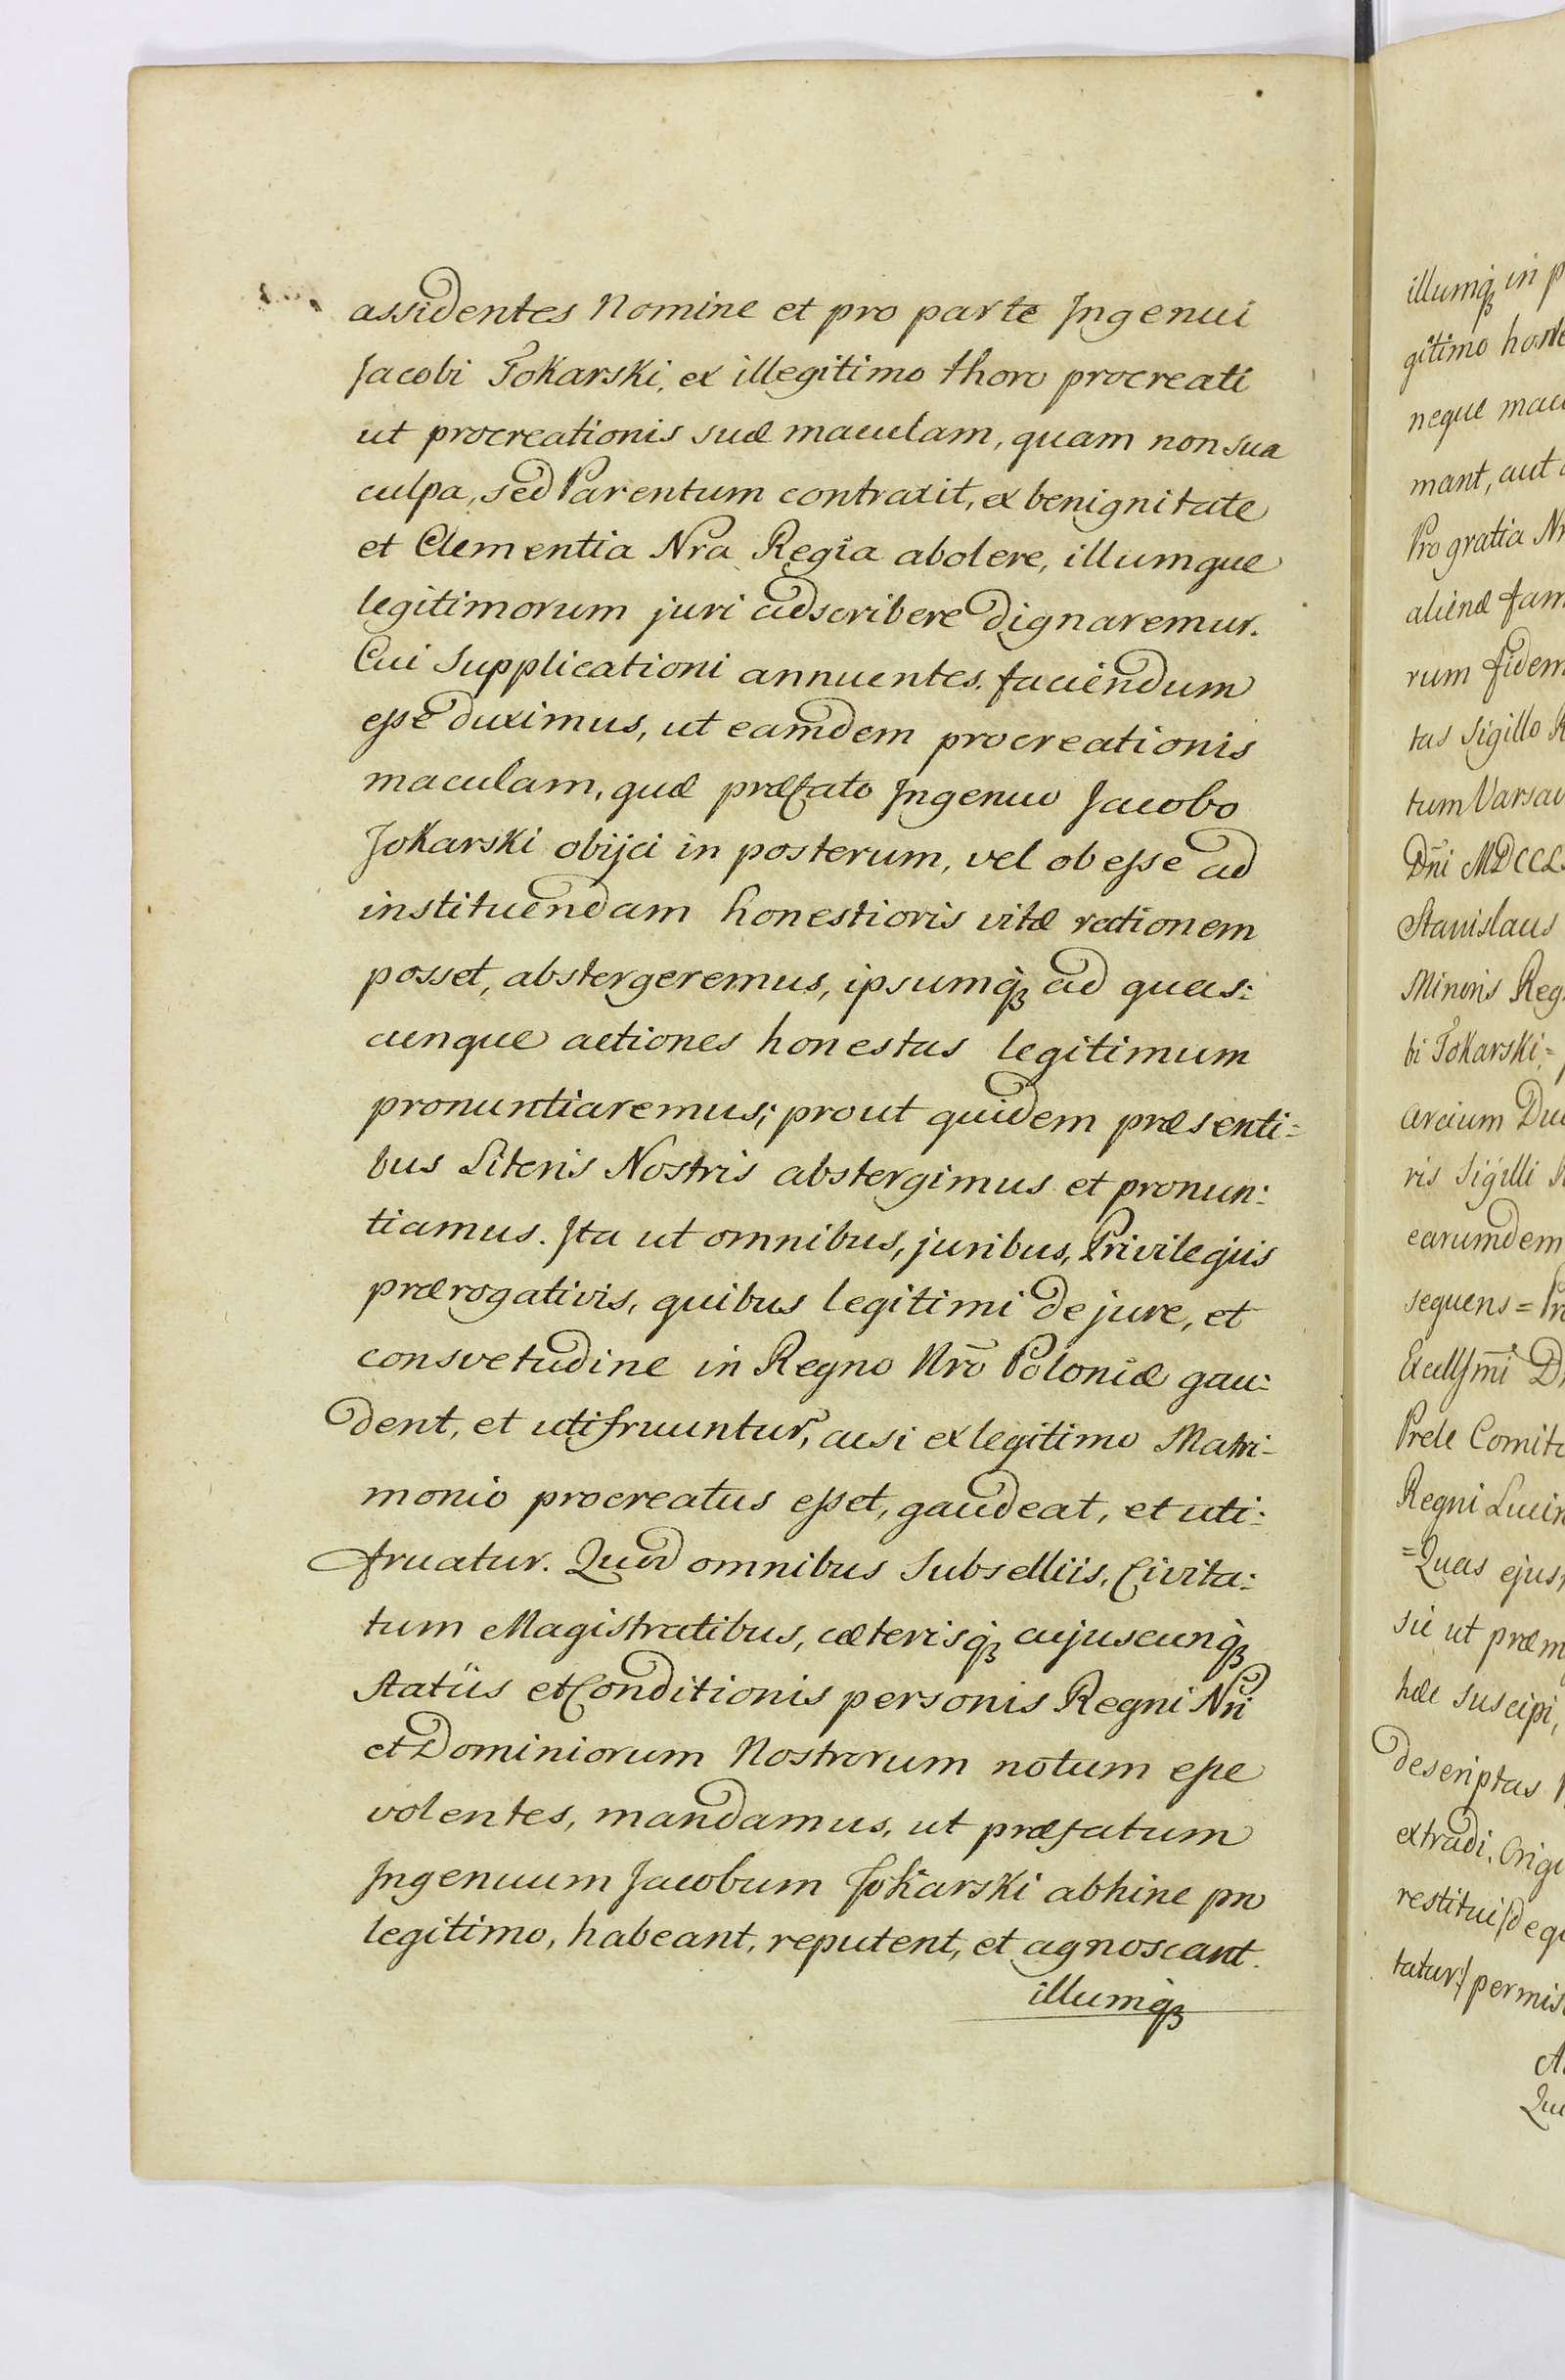 assidentes Nomine et pro parte Ingenui
Jacobi Tokarski, ex illegitimo thoro procreati
ut procreationis suæ maculam, quam non sua
culpa, sed Parentum contraxit, ex benignitate
et Clementia Nra Regia abolere, illumque
legitimorum juri adscribere dignaremur.
Cui Supplicationi annuentes. faciendum
esse duximus, ut eamdem procreationis
maculam, quæ præfato Ingenuo Jacobo
Tokarski obijci in posterum, vel obesse ad
instituendam honestioris vitæ rationem
posset, abstergeremus, ipsumqꝫ ad quas:
cunque actiones honestas legitimum
pronuntiaremus; prout quidem præsenti=
bus Literis Nostris abstergimus et pronun:
tiamus. Ita ut omnibus, juribus, Privilegiis
prærogativis, quibus legitimi de jure, et
consvetudine in Regno Nrō Poloniæ gau:
dent, et utifruuntur, acsi ex legitimo Matri-
monio procreatus esset, gaudeat, et uti:
fruatur. Quod omnibus Subselliis, Civita:
tum Magistratibus, cæterisqꝫ cujuscunqꝫ
statûs et Conditionis personis Regni Nri
et Dominiorum Nostrorum notum esse
volentes, mandamus, ut præfatum
Ingenuum Jacobum Tokarski abhinc pro
legitimo, habeant, reputent, et agnoscant.
illumqꝫ
illumqꝫ in p
gitimo
neque
mant, aut
Pro gratia
alienæ fam
rum fidem
tas Sigillo
tum Varsav
Dñi MDCCL
Stanislaus
Minoris Reg
bi Tokarski=
arcium Du
ris Sigilli
earumdem
sequens =
Excellsmi D
Prele Comit
Regni
=Quas ejus
sic ut præm
hæc suscipi,
descriptas
extradi. Orig
restitui
tatur/ permis
A
Qu